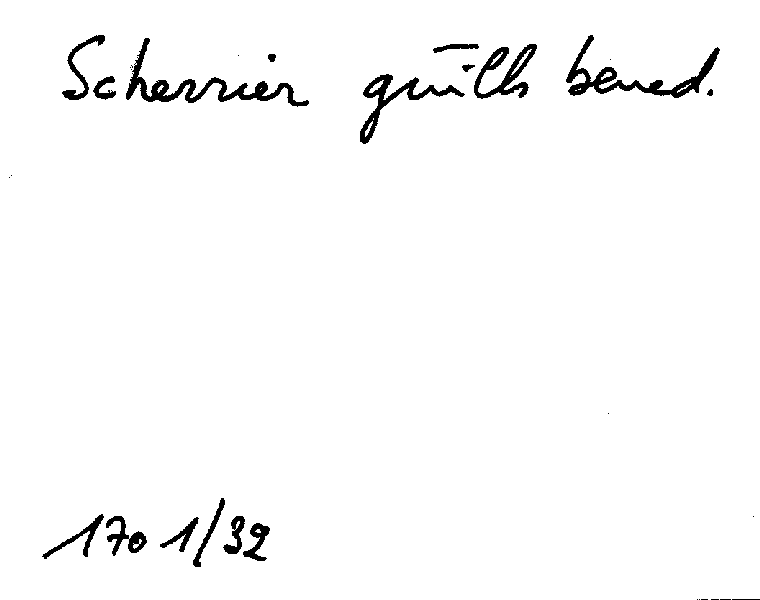 Scherrier guills bened.
1701/32